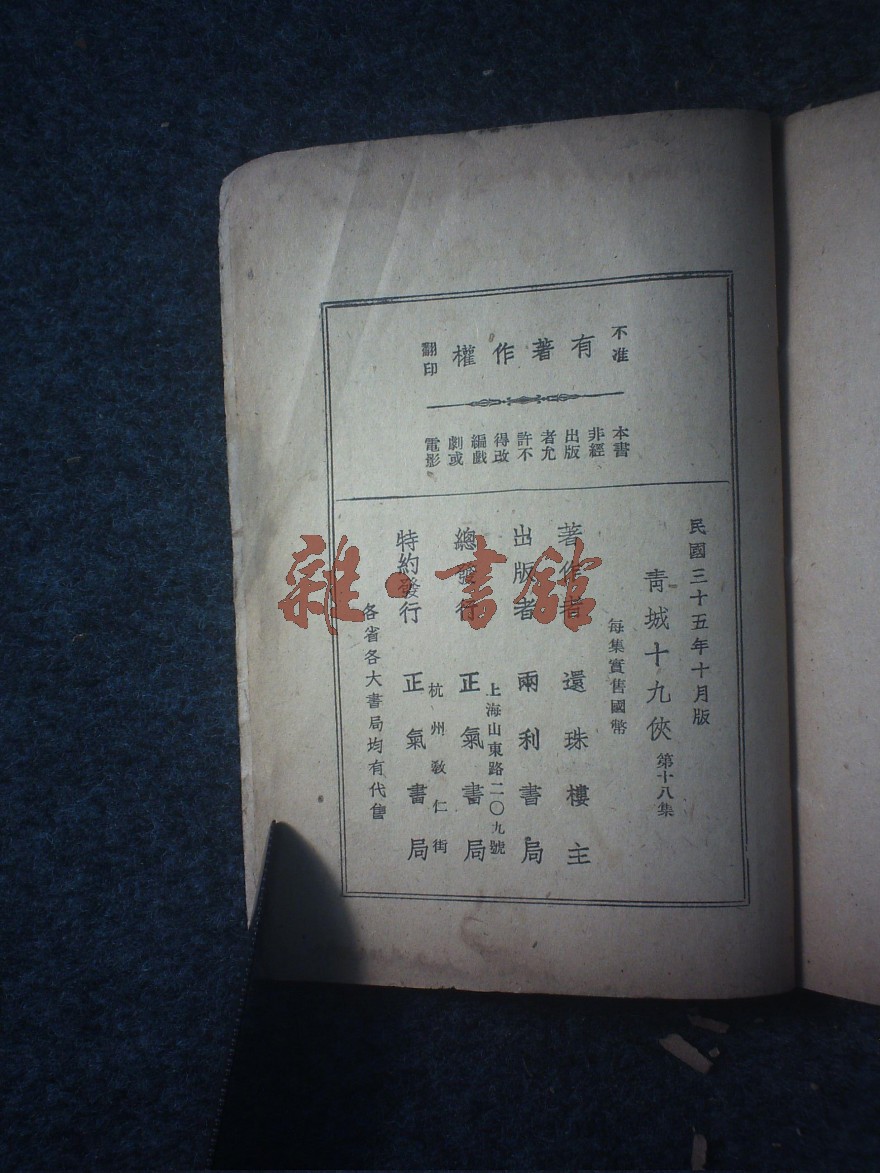 不准
有著作權
翻印
本書
非經
出版
者允
許不
得改
編戲
劇或
電影
民國三十五年十月版
青城十九俠 第十八集
每集實售國幣
著作者 還珠樓主
出版者 兩利書局
上海山東路二〇九號
總發行 正氣書局
杭州教仁街
特約發行 正氣書局
各省各大書局均有代售
雜·書館